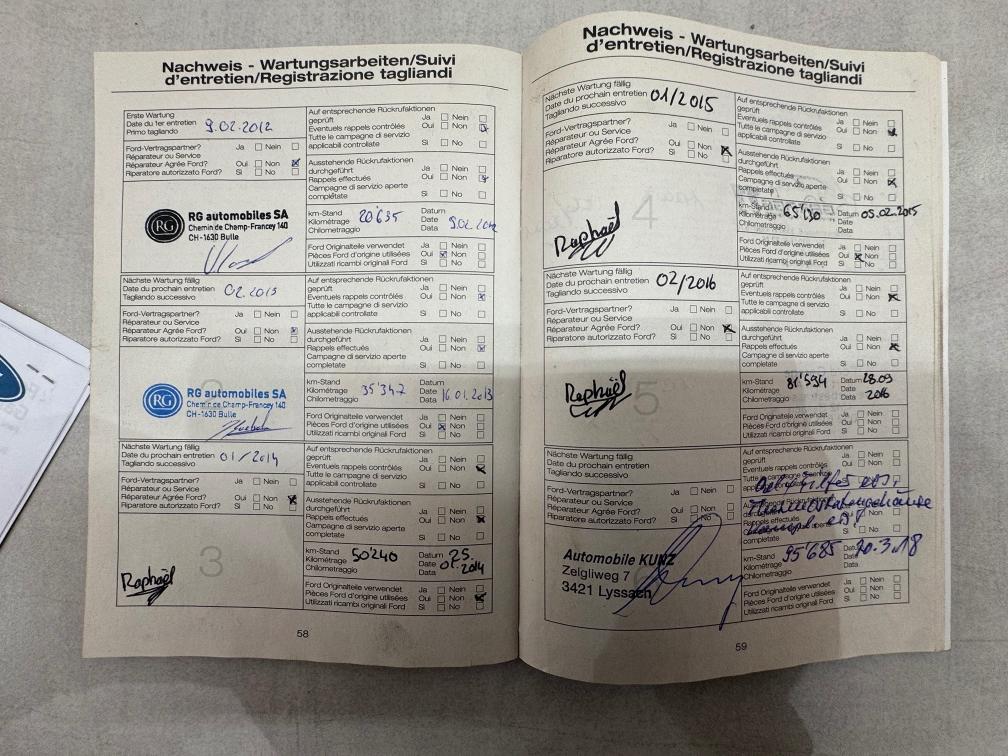 Nachweis - Wartungsarbeiten/Suivi
d'entretien/Registrazione tagliandi
Erste Wartung
Date du 1er entretien
Primo tagliando
9.02.2012
Ford-Vertragspartner? Ja Nein
Réparateur ou Service
Réparateur Agrée Ford? Oui Non
Riparatore autorizzato Ford? Sì No
Auf entsprechende Rückrufaktionen
geprüft Ja Nein
Eventuels rappels contrôlés Oui Non
Tutte le campagne di servizio
applicabili controllate Sì No
Ausstehende Rückrufaktionen
durchgeführt Ja Nein
Rappels effectués Oui Non
Campagne di servizio aperte
completate Sì No
RG
RG automobiles SA
Chemin de Champ-Francey 140
CH-1630 Bulle
km-Stand
Kilométrage
Chilometraggio
20'635
Datum
Date
Data
9.02.2012
Ford Originalteile verwendet Ja Nein
Pièces Ford d'origine utilisées Oui Non
Utilizzati ricambi originali Ford Sì No
Nächste Wartung fällig
Date du prochain entretien
Tagliando successivo
02.2013
Ford-Vertragspartner? Ja Nein
Réparateur ou Service
Réparateur Agrée Ford? Oui Non
Riparatore autorizzato Ford? Sì No
Auf entsprechende Rückrufaktionen
geprüft Ja Nein
Eventuels rappels contrôlés Oui Non
Tutte le campagne di servizio
applicabili controllate Sì No
Ausstehende Rückrufaktionen
durchgeführt Ja Nein
Rappels effectués Oui Non
Campagne di servizio aperte
completate Sì No
2
RG
RG automobiles SA
Chemin de Champ-Francey 140
CH-1630 Bulle
km-Stand
Kilométrage
Chilometraggio
35'347
Datum
Date
Data
16.01.2013
Ford Originalteile verwendet Ja Nein
Pièces Ford d'origine utilisées Oui Non
Utilizzati ricambi originali Ford Sì No
Nächste Wartung fällig
Date du prochain entretien
Tagliando successivo
01/2014
Ford-Vertragspartner? Ja Nein
Réparateur ou Service
Réparateur Agrée Ford? Oui Non
Riparatore autorizzato Ford? Sì No
Auf entsprechende Rückrufaktionen
geprüft Ja Nein
Eventuels rappels contrôlés Oui Non
Tutte le campagne di servizio
applicabili controllate Sì No
Ausstehende Rückrufaktionen
durchgeführt Ja Nein
Rappels effectués Oui Non
Campagne di servizio aperte
completate Sì No
3
Raphaël
km-Stand
Kilométrage
Chilometraggio
50'240
Datum
Date
Data
25.
01.2014
Ford Originalteile verwendet Ja Nein
Pièces Ford d'origine utilisées Oui Non
Utilizzati ricambi originali Ford Sì No
58
Nachweis - Wartungsarbeiten/Suivi
d'entretien/Registrazione tagliandi
Nächste Wartung fällig
Date du prochain entretien
Tagliando successivo
01/2015
Ford-Vertragspartner? Ja Nein
Réparateur ou Service
Réparateur Agrée Ford? Oui Non
Riparatore autorizzato Ford? Sì No
Auf entsprechende Rückrufaktionen
geprüft Ja Nein
Eventuels rappels contrôlés Oui Non
Tutte le campagne di servizio
applicabili controllate Sì No
Ausstehende Rückrufaktionen
durchgeführt Ja Nein
Rappels effectués Oui Non
Campagne di servizio aperte
completate Sì No
4
Raphaël
km-Stand
Kilométrage
Chilometraggio
65'130
Datum
Date
Data
05.02.2015
Ford Originalteile verwendet Ja Nein
Pièces Ford d'origine utilisées Oui Non
Utilizzati ricambi originali Ford Sì No
Nächste Wartung fällig
Date du prochain entretien
Tagliando successivo
02/2016
Ford-Vertragspartner? Ja Nein
Réparateur ou Service
Réparateur Agrée Ford? Oui Non
Riparatore autorizzato Ford? Sì No
Auf entsprechende Rückrufaktionen
geprüft Ja Nein
Eventuels rappels contrôlés Oui Non
Tutte le campagne di servizio
applicabili controllate Sì No
Ausstehende Rückrufaktionen
durchgeführt Ja Nein
Rappels effectués Oui Non
Campagne di servizio aperte
completate Sì No
5
Raphaël
km-Stand
Kilométrage
Chilometraggio
81'594
Datum
Date
Data
28.09
2016
Ford Originalteile verwendet Ja Nein
Pièces Ford d'origine utilisées Oui Non
Utilizzati ricambi originali Ford Sì No
Nächste Wartung fällig
Date du prochain entretien
Tagliando successivo
Ford-Vertragspartner? Ja Nein
Réparateur ou Service
Réparateur Agrée Ford? Oui Non
Riparatore autorizzato Ford? Sì No
Auf entsprechende Rückrufaktionen
geprüft Ja Nein
Eventuels rappels contrôlés
Tutte le campagne di servizio
Thermostatengehäuse
Rappels effectués
Campagne di servizio aperte
completate Sì No
6
Automobile KUNZ
Zelgliweg 7
3421 Lyssach
km-Stand
Kilométrage
Chilometraggio
95'685
Datum
Date
Data
20.3.18
Ford Originalteile verwendet Ja Nein
Pièces Ford d'origine utilisées Oui Non
Utilizzati ricambi originali Ford Sì No
59